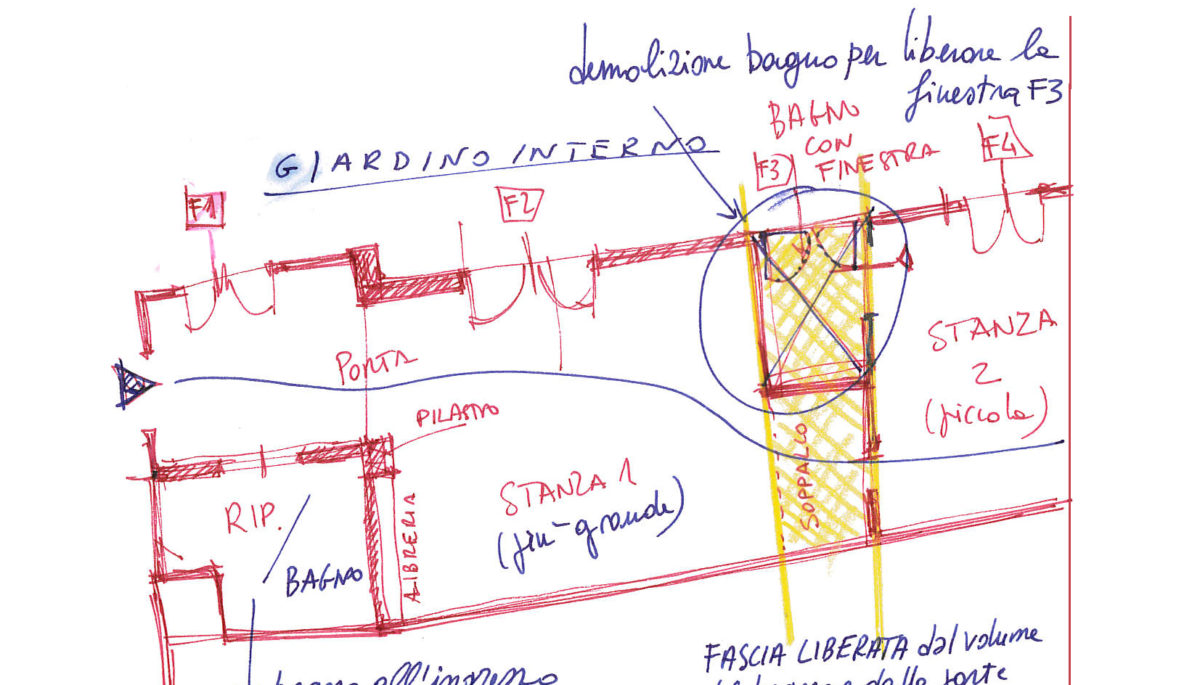 demolizione bagno per liberare la
finestra F3
BAGNO
CON
FINESTRA
GIARDINO INTERNO
F1
F2
F3
F4
PORTA
PILASTRO
STANZA
2
(piccola)
STANZA 1
(più grande)
SOPPALCO
RIP.
BAGNO
LIBRERIA
bagno all'ingresso
FASCIA LIBERATA dal volume
del bagno e dalla parte